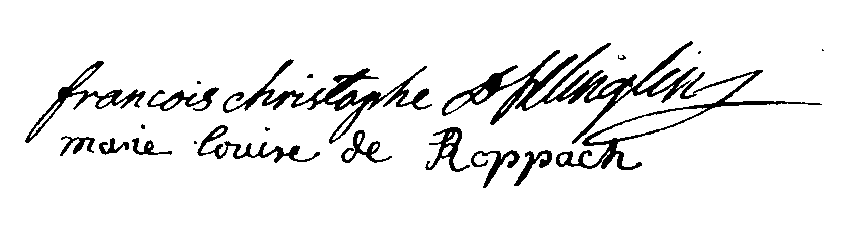 francois christophe
marie louise de Roppach